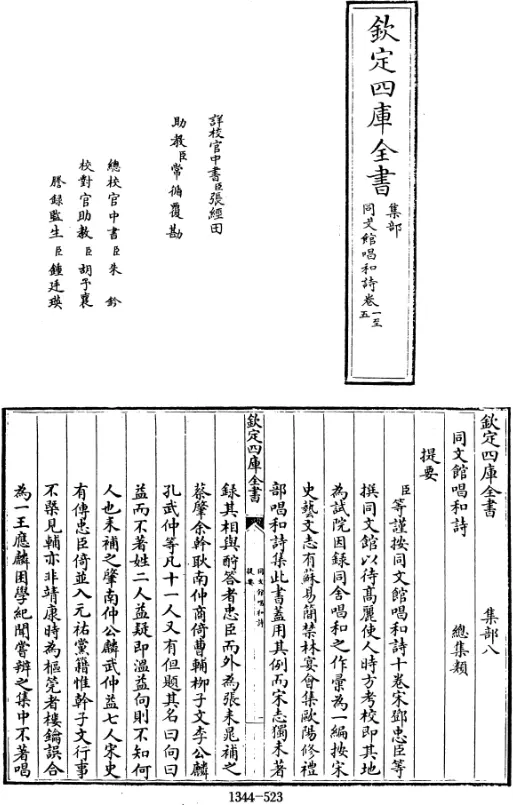 欽定四庫全書
集部
同文館唱和詩卷一至五
詳校官中書臣張經田
助教臣常循覆勘
總校官中書臣朱鈐
校對官助教臣胡予襄
謄錄監生臣鍾廷瑛
欽定四庫全書 集部八
同文館唱和詩 總集類
提要
臣等謹按同文館唱和詩十卷宋鄧忠臣等
撰同文館以待高麗使人時方考校即其地
為試院因録同舍唱和之作彚為一編按宋
史藝文志有蘇易簡禁林宴會集歐陽修禮
部唱和詩集此書蓋用其例而宋志獨未著
欽定四庫全書
同文館唱和詩
提要
一
録其相與酧答者忠臣而外為張耒晁補之
蔡肇余幹耿南仲商倚曹輔柳子文李公麟
孔武仲等凡十一人又有但題其名曰向曰
益而不著姓二人益疑即温益向則不知何
人也耒補之肇南仲公麟武仲益七人宋史
有傳忠臣倚並入元祐黨籍惟幹子文行事
不槩見輔亦非靖康時為樞筦者樓鑰誤合
為一王應麟困學紀聞嘗辨之集中不著唱
1344-523